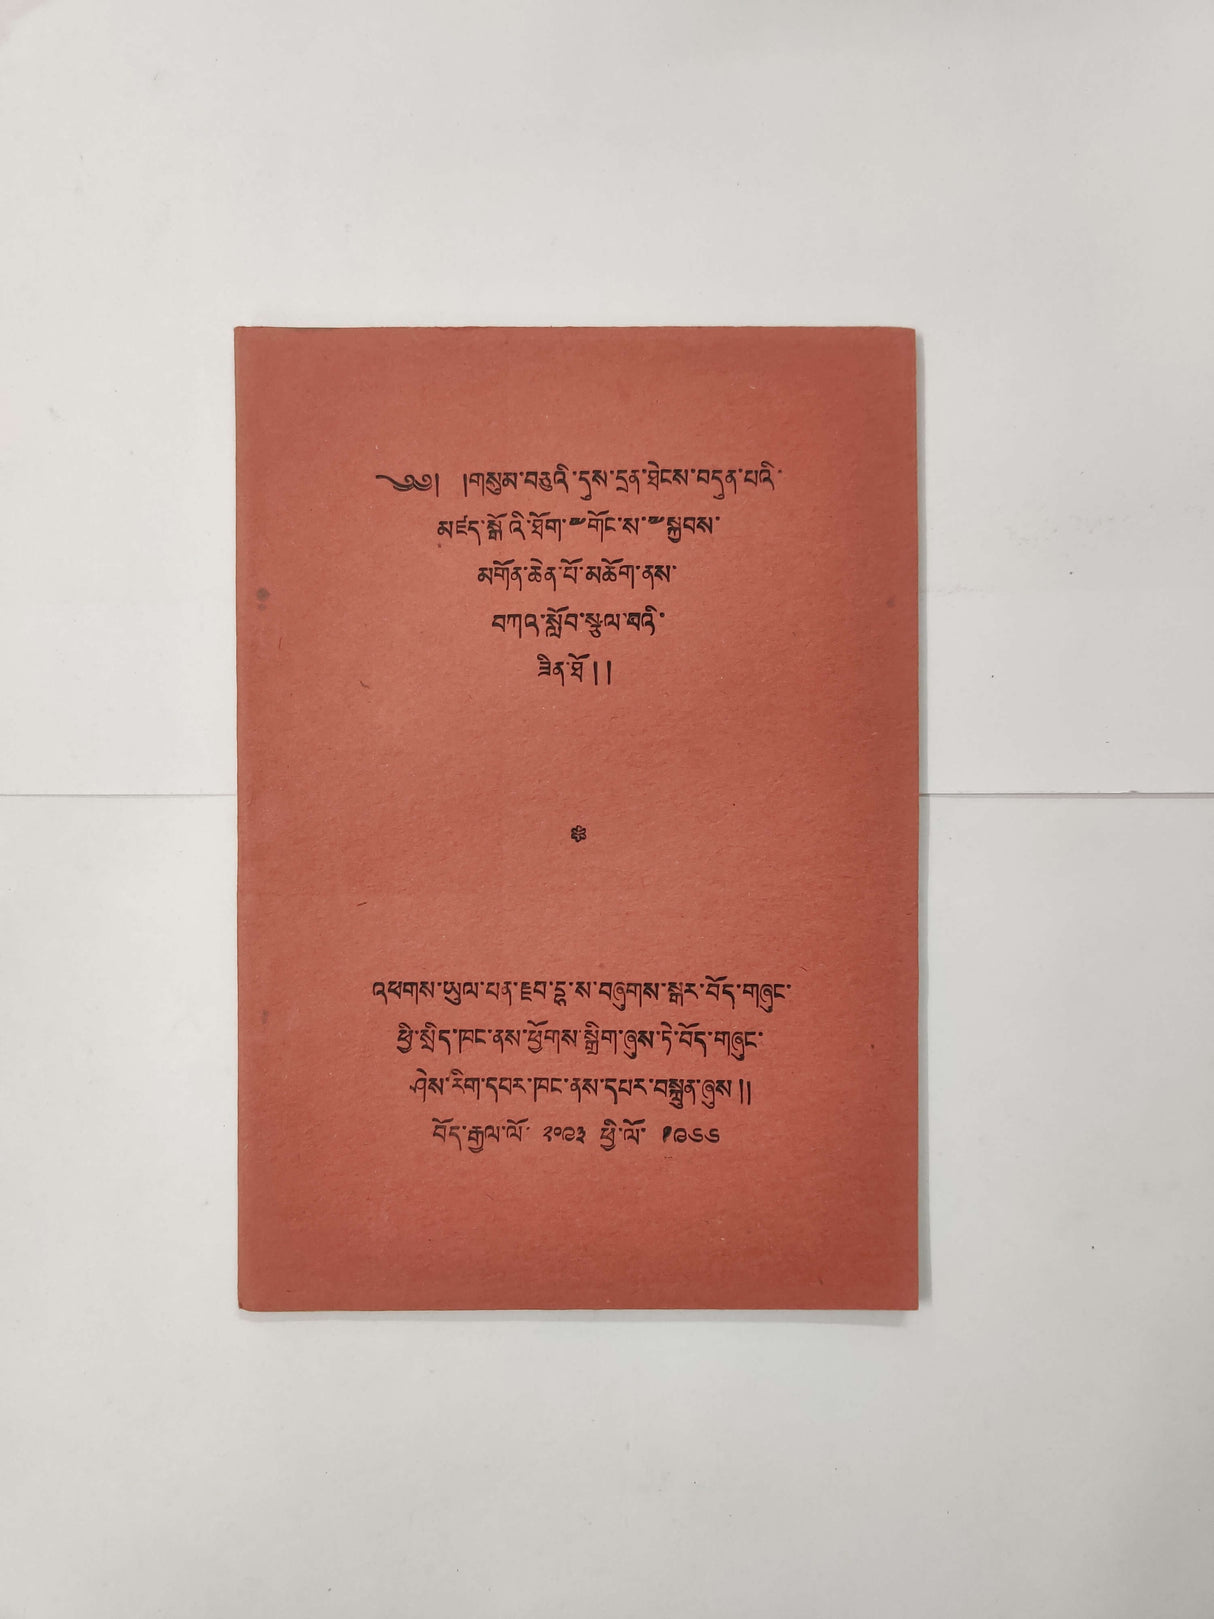 ༄༅།  །གསུམ་བཅུའི་དུས་དྲན་ཐེངས་བདུན་པའི་
མཛད་སྒོའི་ཐོག་༸གོང་ས་༸སྐྱབས་
མགོན་ཆེན་པོ་མཆོག་ནས་
བཀའ་སློབ་སྩལ་བའི་
ཟིན་ཐོ།།
འཕགས་ཡུལ་པན་ཇབ་རྡ་ས་བཞུགས་སྒར་བོད་གཞུང་
ཕྱི་སྲིད་ཁང་ནས་ཕྱོགས་སྒྲིག་ཞུས་ཏེ་བོད་གཞུང་
ཤེས་རིག་དཔར་ཁང་ནས་དཔར་བསྐྲུན་ཞུས།།
བོད་རྒྱལ་ལོ་ ༢༠༩༣ ཕྱི་ལོ་ ༡༩༦༦